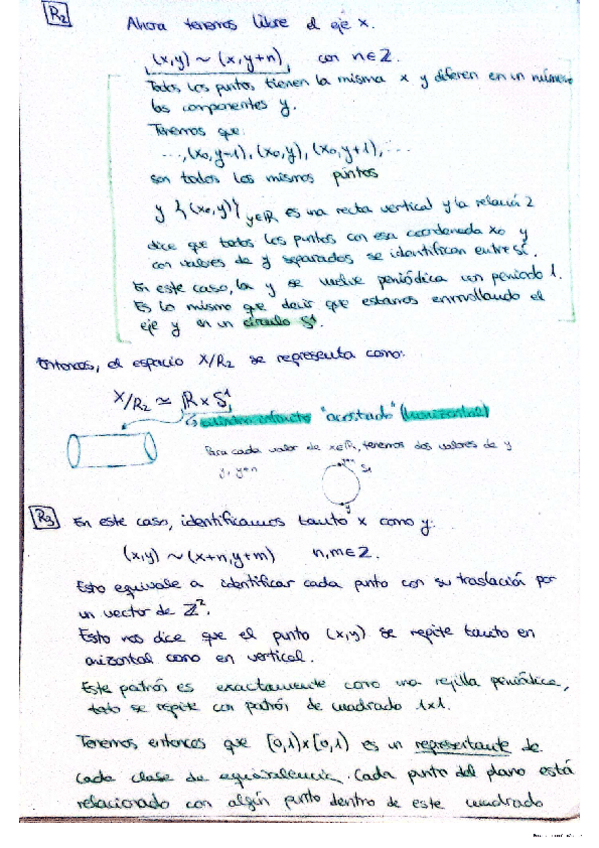 R₂ Ahora tenemos libre el eje x.
(x,y) ~ (x,y+n) con n∈ℤ.
Todos los puntos tienen la misma x y difieren en un número
las componentes y.
Tenemos que:
...,(x₀,y-1), (x₀,y), (x₀,y+1),...
son todos los mismos puntos
y {(x₀,y)} y∈ℝ es una recta vertical y la relación 2
dice que todos los puntos con esa coordenada x₀ y
con valores de y separados se identifican entre sí.
En este caso, la y se vuelve periódica con periodo 1.
Es lo mismo que decir que estamos enrrollando el
eje y en un círculo S¹.
Entonces, el espacio X/R₂ se representa como:
X/R₂ ≃ ℝ x S¹
cilindro infinito "acostado" (horizontal)
Para cada valor de x∈ℝ, tenemos dos valores de y
y, y+n
S₁
y
R₃ En este caso, identificamos tanto x como y:
(x,y) ~ (x+n,y+m) n,m∈ℤ.
Esto equivale a identificar cada punto con su traslación por
un vector de ℤ².
Esto nos dice que el punto (x,y) se repite tanto en
orizontal como en vertical.
Este patrón es exactamente como una rejilla periódica,
todo se repite con patrón de cuadrado 1x1.
Tenemos entonces que [0,1)x[0,1) es un representante de
cada clase de equivalencia. Cada punto del plano está
relacionado con algún punto dentro de este cuadrado